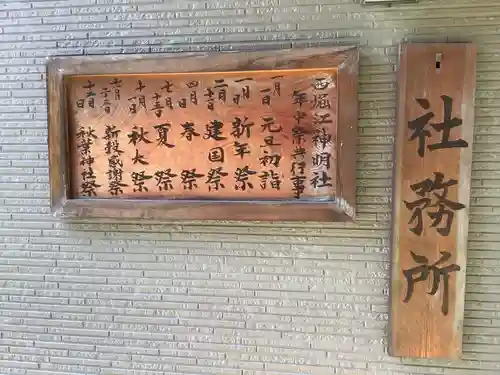 社務所
西堀江神明社
年中祭典行事
一月一日 元旦初詣
一日 新年祭
二月十一日 建国祭
四月 日 春祭
七月 日 夏祭
十月 日 秋大祭
十一月二十三日 新穀感謝祭
十二月 日 秋葉神社祭